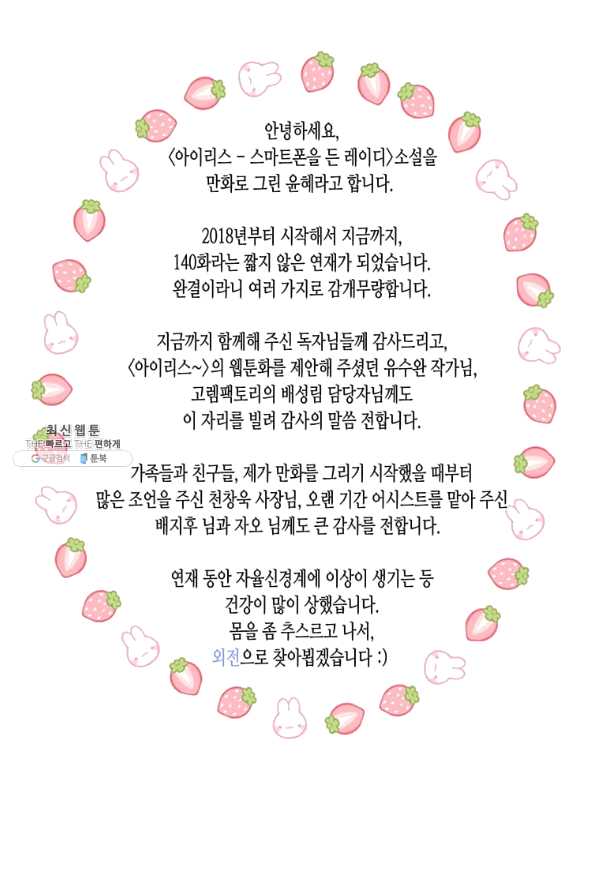 안녕하세요,
<아이리스 - 스마트폰을 든 레이디>소설을
만화로 그린 윤혜라고 합니다.
2018년부터 시작해서 지금까지,
140화라는 짧지 않은 연재가 되었습니다.
완결이라니 여러 가지로 감개무량합니다.
지금까지 함께해 주신 독자님들께 감사드리고,
<아이리스~>의 웹툰화를 제안해 주셨던 유수완 작가님,
고렘팩토리의 배성림 담당자님께도
이 자리를 빌려 감사의 말씀 전합니다.
최신웹툰
THE빠르고 THE편하게
구글검색 툰북
가족들과 친구들, 제가 만화를 그리기 시작했을 때부터
많은 조언을 주신 천창욱 사장님, 오랜 기간 어시스트를 맡아 주신
배지후 님과 자오 님께도 큰 감사를 전합니다.
연재 동안 자율신경계에 이상이 생기는 등
건강이 많이 상했습니다.
몸을 좀 추스르고 나서,
외전으로 찾아뵙겠습니다 :)